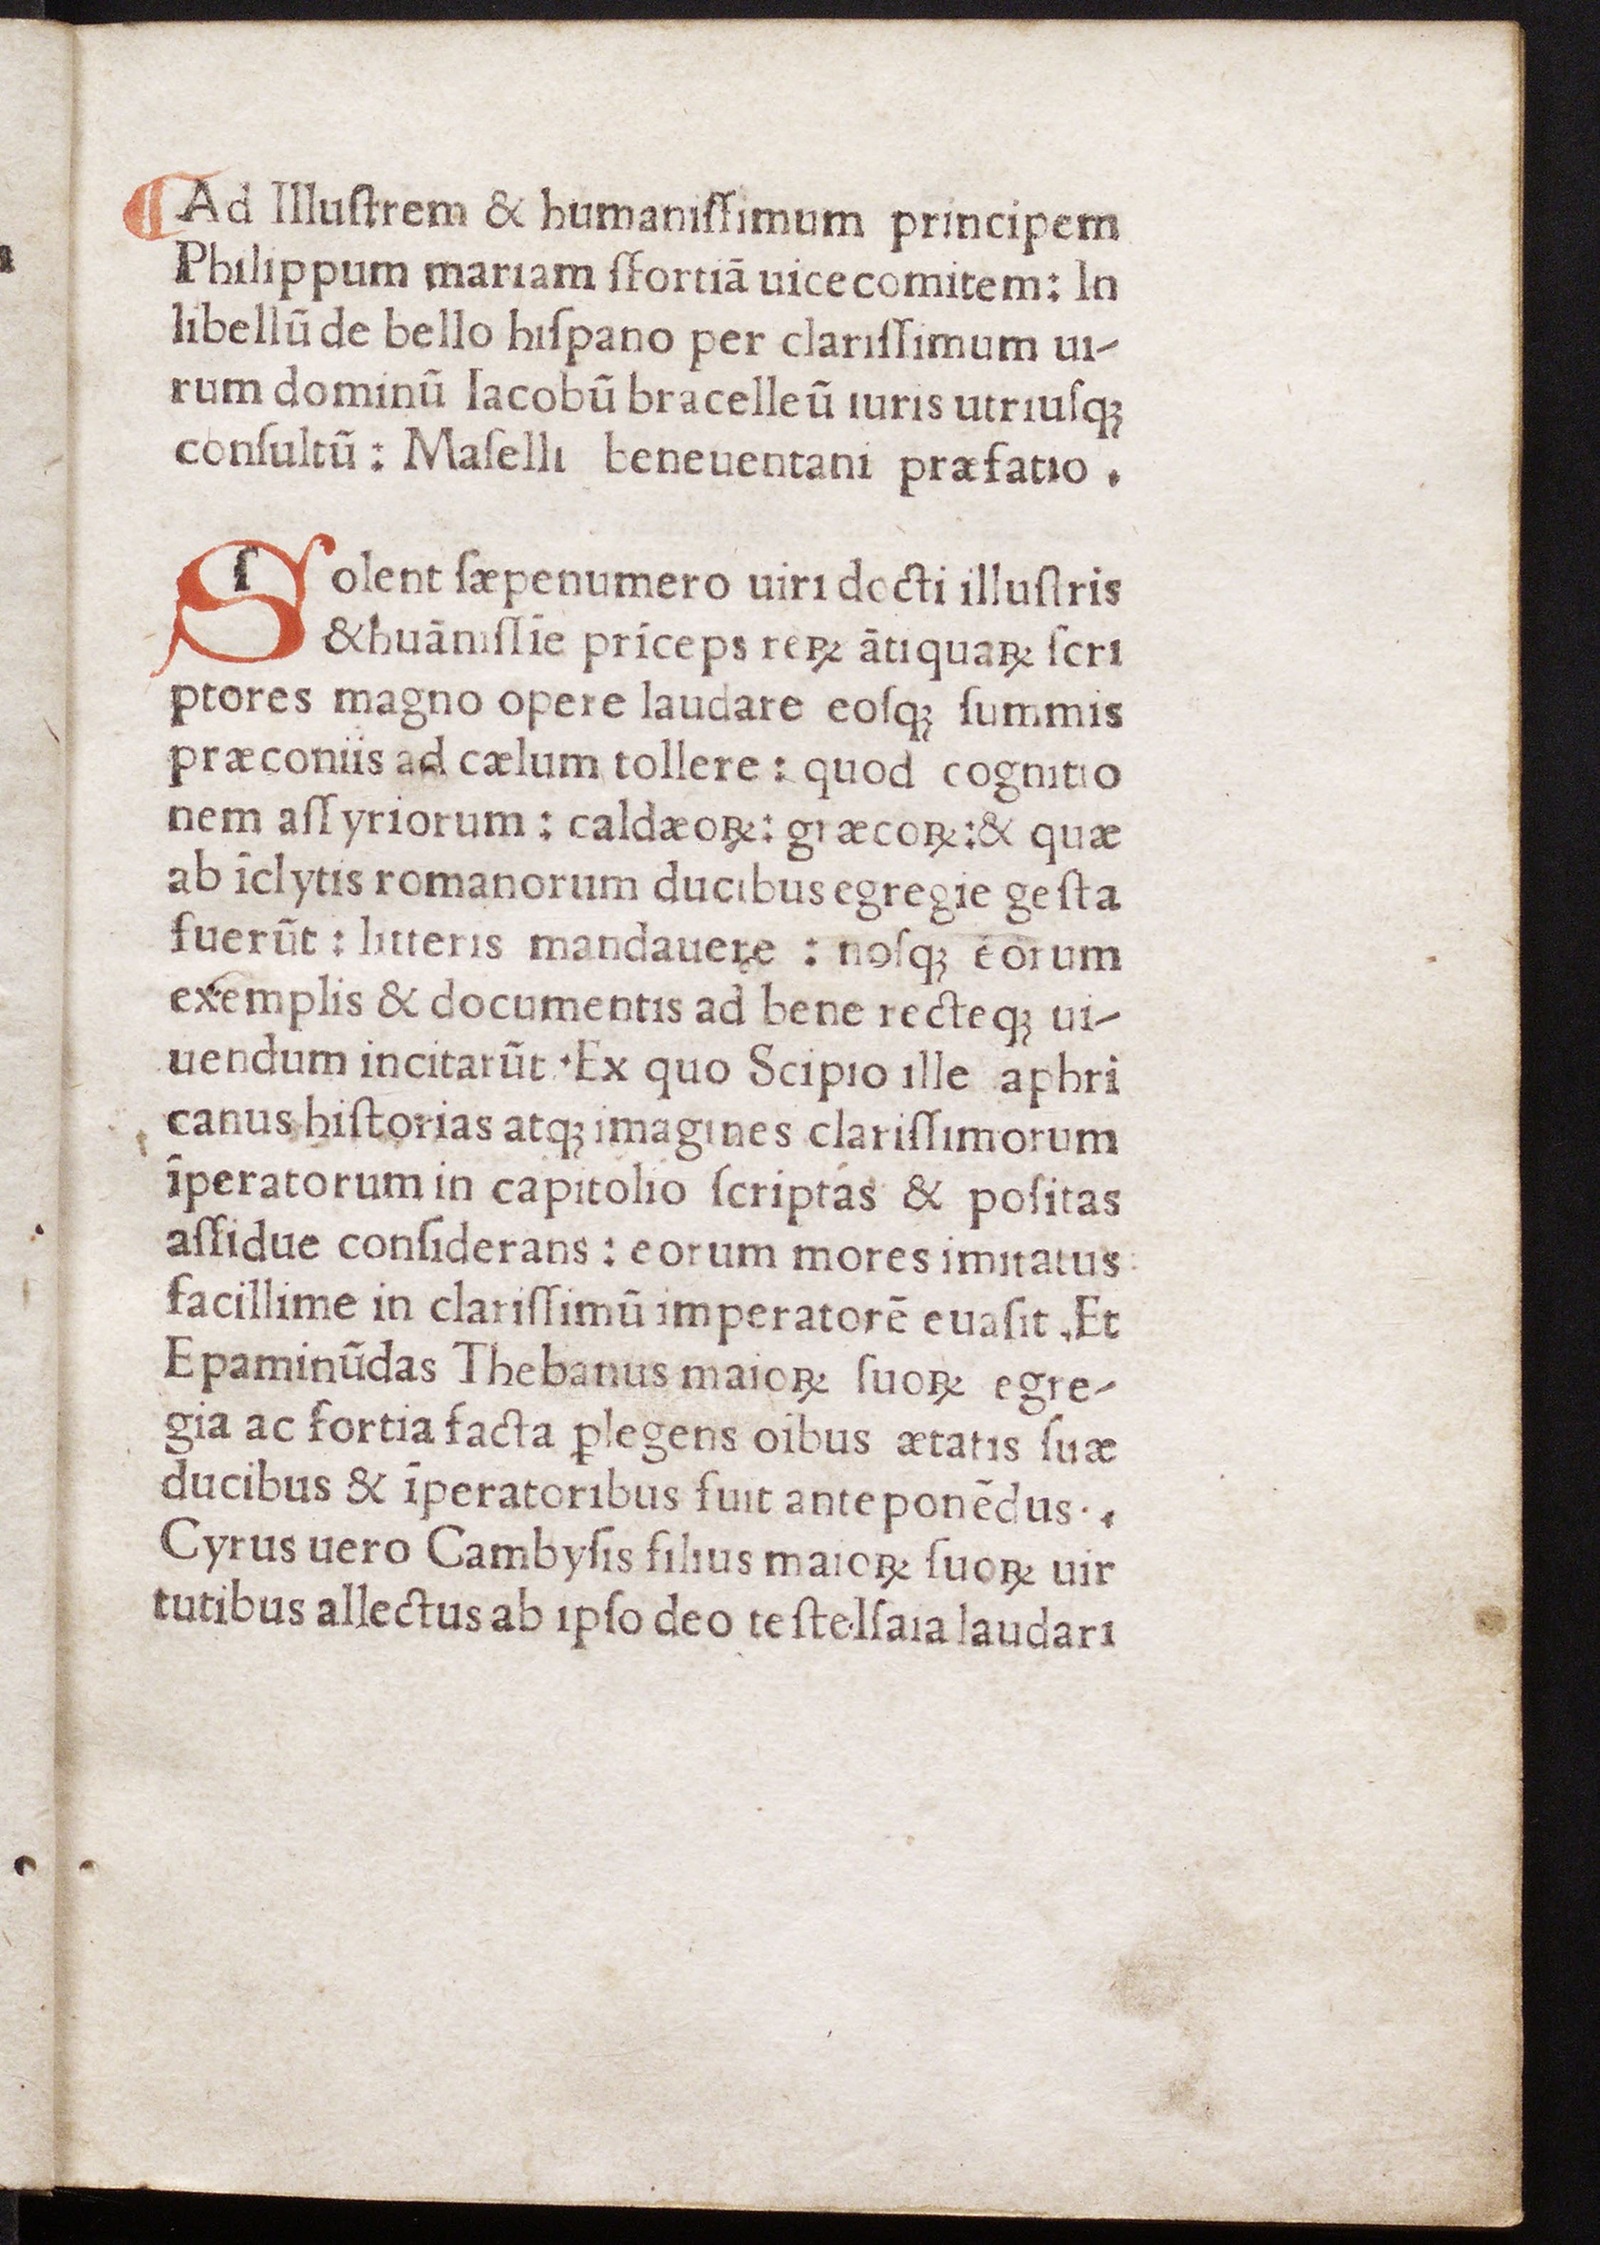 ¶Ad Illuſtrem & humaniſſimum principem
Philippum mariam ſfortiā uicecomitem: In
libellū de bello hiſpano per clariſſimum ui-
rum dominū Iacobū bracelleū iuris utriuſqꝫ
conſultū: Maſelli beneuentani præfatio.
Solent ſæpenumero uiri docti illuſtris
& huāniſſīe prīceps reꝝ ātiquaꝝ ſcri
ptores magno opere laudare eoſqꝫ ſummis
præconiis ad cælum tollere: quod cognitio
nem aſſyriorum: caldæoꝝ: græcoꝝ: & quæ
ab īclytis romanorum ducibus egregie geſta
fuerūt: litteris mandauere: noſqꝫ eorum
exemplis & documentis ad bene recteqꝫ ui-
uendum incitarūt. Ex quo Scipio ille aphri
canus hiſtorias atqꝫ imagines clariſſimorum
īperatorum in capitolio ſcriptas & poſitas
aſſidue conſiderans: eorum mores imitatus
facillime in clariſſimū imperatorē euaſit. Et
Epaminūdas Thebanus maioꝝ ſuoꝝ egre-
gia ac fortia facta ꝑlegens oībus ætatis ſuæ
ducibus & īperatoribus fuit anteponēdus.
Cyrus uero Cambyſis filius maioꝝ ſuoꝝ uir
tutibus allectus ab ipſo deo teſte Iſaia laudari